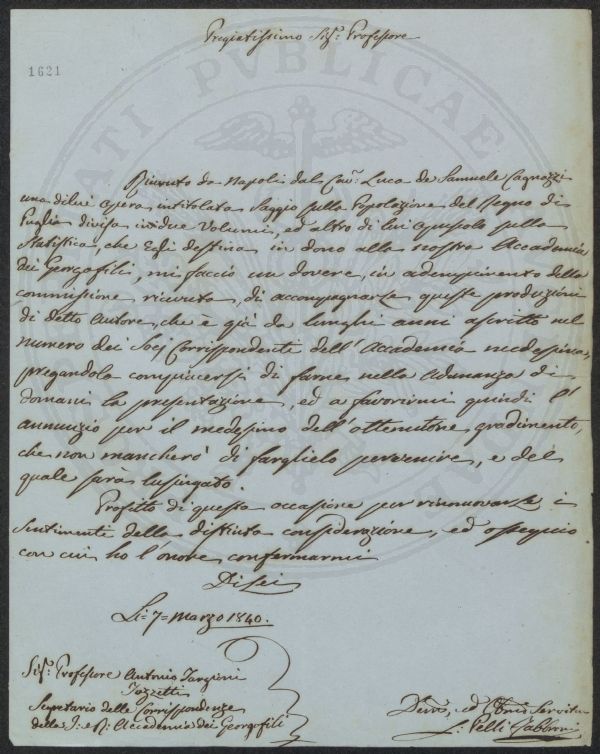 Pregiatissimo Sig.r Professore
1621
Ricevuto da Napoli dal Cav. Luca de Samuele Cagnazzi
una di lui opera intitolata Saggio sulla Popolazione del Regno di
Puglia divisa in due Volumi, ed altro di lui opuscolo sulla
Statistica, che Egli destina in dono alla nostra Accademia
dei Georgofili, mi faccio un dovere, in adempimento della
commissione ricevuta, di accompagnarle queste produzioni
di detto Autore, che è già da lunghi anni ascritto nel
numero dei Socj Corrispondenti dell'Accademia medesima,
pregandola compiacersi di farne nella Adunanza di
domani la presentazione, ed a favorirmi quindi l'
annunzio per il medesimo dell'ottenutone gradimento,
che non mancherò di farglielo pervenire, e del
quale sarà lusingato.
Profitto di questa occasione per rinnuovarle i
sentimenti della distinta considerazione, ed ossequio
con cui ho l'onore confermarmi
Di Lei
Li= 7= Marzo 1840.
Sig.r Professore Antonio Targioni
Tozzetti
Segretario delle Corrispondenze
della I: e R: Accademia dei Georgofili
Devmo, ed Servitore
Pelli Fabbroni